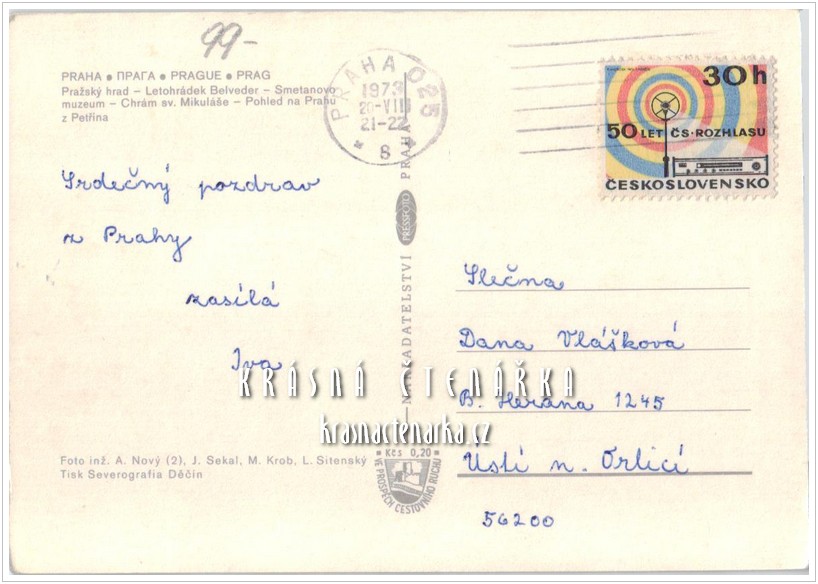 99-
PRAHA ● ПРАГА ● PRAGUE ● PRAG
Pražský hrad – Letohrádek Belveder – Smetanovo
muzeum – Chrám sv. Mikuláše – Pohled na Prahu
z Petřína
PRAHA 025
1973
20-VIII
21-22
* 8 *
30h
50 LET ČS·ROZHLASU
ČESKOSLOVENSKO
Srdečný pozdrav
z Prahy
zasílá
Iva
NAKLADATELSTVÍ PRESSFOTO PRAHA
Slečna
Dana Vlášková
B. Herana 1245
Ústí n. Orlicí
56200
KRÁSNÁ ČTENÁŘKA
krasnactenarka.cz
Foto inž. A. Nový (2), J. Sekal, M. Krob, L. Sitenský
Tisk Severografia Děčín
Kčs 0,20
VE PROSPĚCH CESTOVNÍHO RUCHU